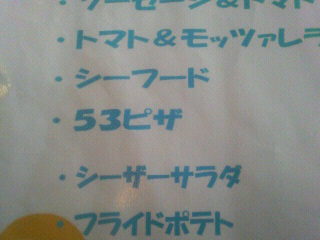 ・ソーセージ&トマト
・トマト&モッツァレラ
・シーフード
・53ピザ
・シーザーサラダ
・フライドポテト